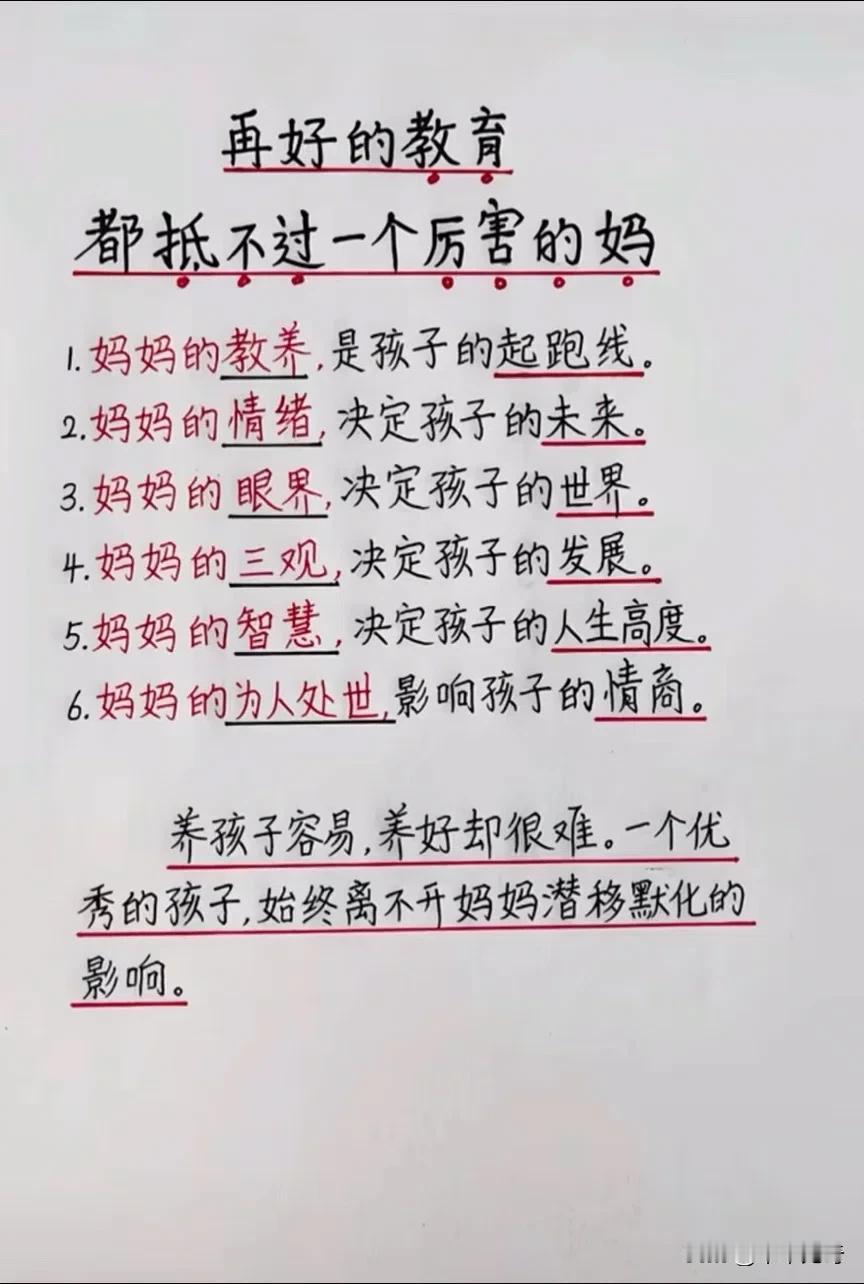 再好的教育
都抵不过一个厉害的妈
1.妈妈的教养,是孩子的起跑线。
2.妈妈的情绪,决定孩子的未来。
3.妈妈的眼界,决定孩子的世界。
4.妈妈的三观,决定孩子的发展。
5.妈妈的智慧,决定孩子的人生高度。
6.妈妈的为人处世,影响孩子的情商。
养孩子容易,养好却很难。一个优
秀的孩子,始终离不开妈妈潜移默化的
影响。